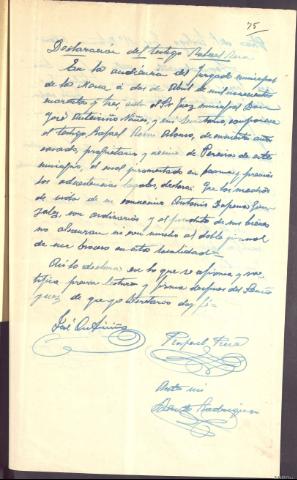 75
Declaración del testigo Rafael Riera
En la audiencia del Juzgado municipal
de La a dos de Abril de mil novecientos
cuarenta y tres, ante el Sr. Juez municipal Don
José Antuñiña y mi Secretario, comparece
el testigo Rafael Riera Alonso, de años
casado, propietario y vecino de Pereiros de este
municipio, el cual juramentado en forma, previas
las advertencias legales declara: Que los medios
de vida de su convecino Antonio
son ordinarios y el producto de sus bienes
no alcanzan ni con mucho al doble jornal
de un bracero en esta localidad.
Así lo declara en lo que se afirma y ra-
tifica previa lectura y firma después del Señor
Juez de que yo Secretario doy fé
José Antuñiña
Rafael Riera
Ante mi
Rodriguez